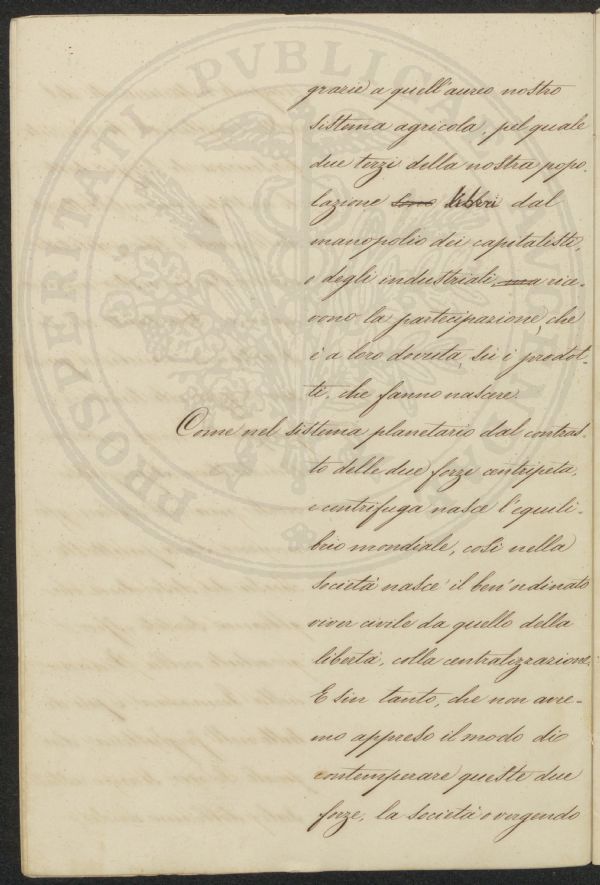 grazie a quell'aureo nostro
sistema agricola, pel quale
due terzi della nostra popo-
lazione sono libbri dal
manopolio dei capitalisti,
e degli industriali, ma rice-
vono la partecipazione, che
è a loro dovuta, su i prodot-
ti, che fanno nascere.
Come nel sistema planetario dal contras-
to delle due forze centripeta,
e centrifuga nasce l'equili-
brio mondiale, così nella
Società nasce il ben'ordinato
viver civile da quello della
libertà, colla centralizzazione.
E sin tanto, che non avre-
mo appreso il modo di
contemperare queste due
forze, la società o vergendo
PROSPERITATI PVBLICAE